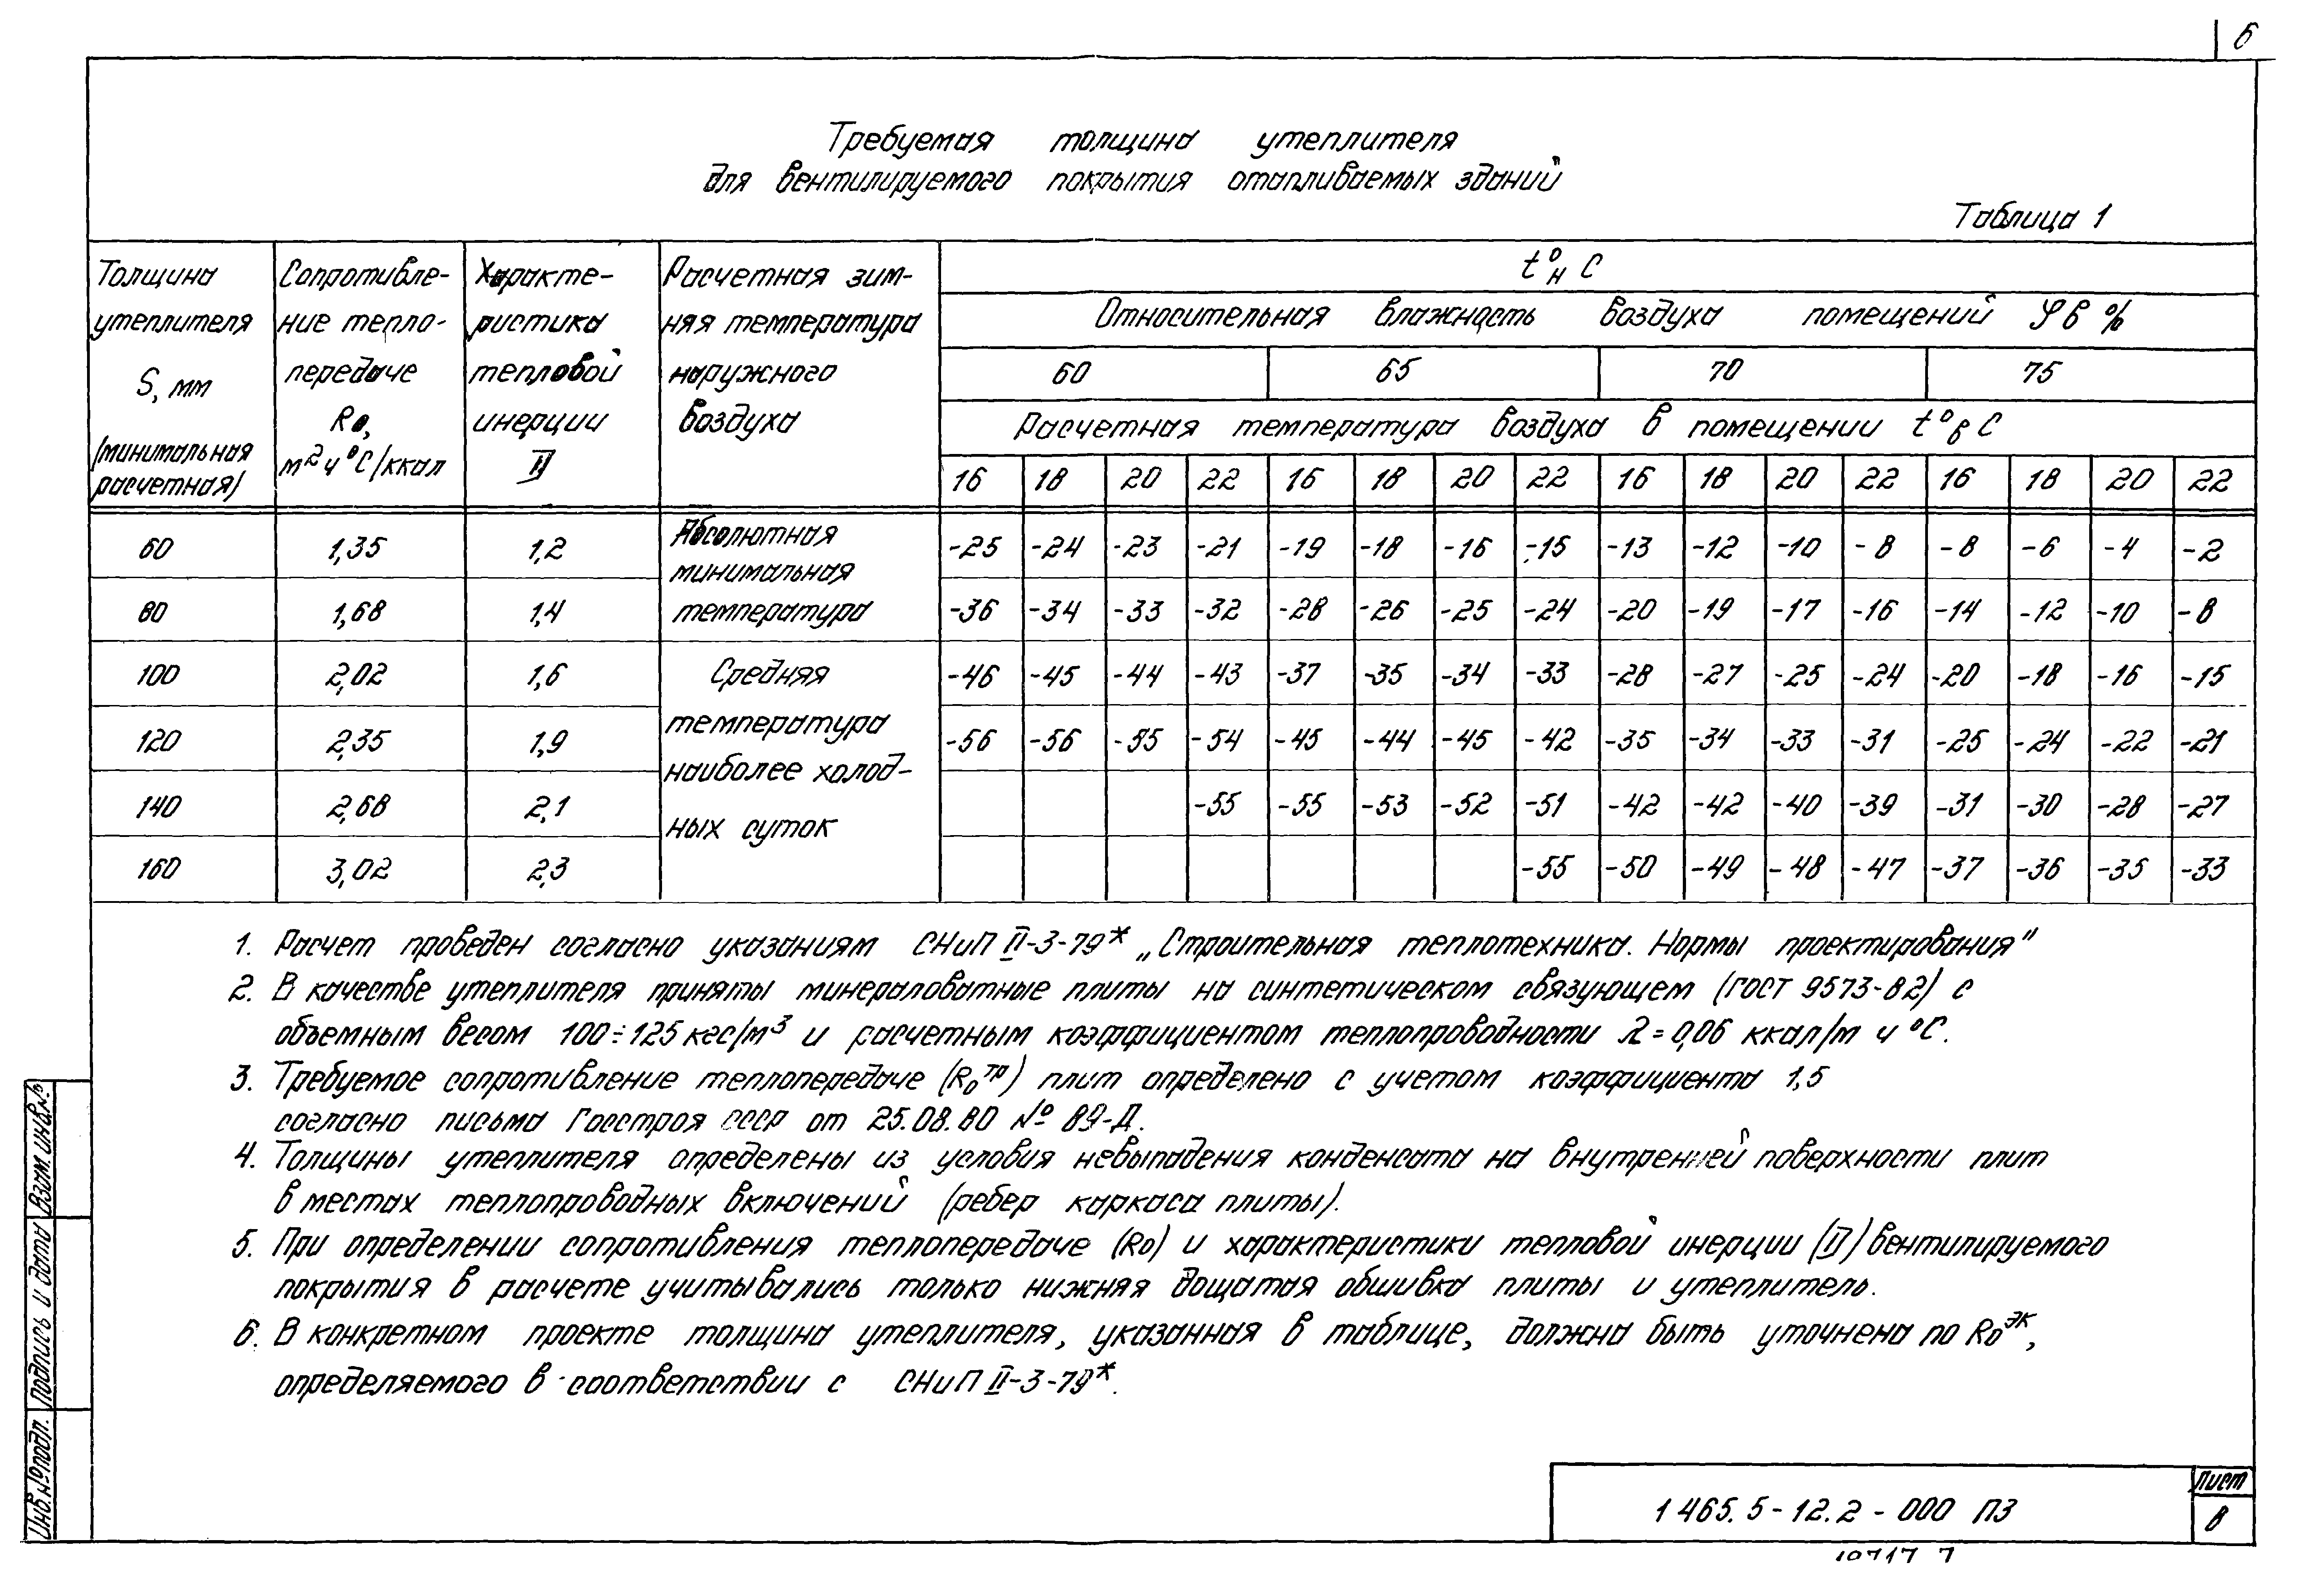 6
Требуемая толщина утеплителя
для вентилируемого покрытия отапливаемых зданий
Таблица 1
Толщина утеплителя S, мм /минимальная расчетная/
Сопротивле-
ние тепло-
передаче
R₀,
м² ч °С/ккал
Характе-
ристика
тепловой
инерции
Д
Расчетная зим-
няя температура
наружного
воздуха
t°н С
Относительная влажность воздуха помещений φв %
60 65 70 75
Расчетная температура воздуха в помещении t°в С
16 18 20 22 16 18 20 22 16 18 20 22 16 18 20 22
Абсолютная
минимальная
температура
Средняя
температура
наиболее холод-
ных суток
60 1,35 1,2 -25 -24 -23 -21 -19 -18 -16 -15 -13 -12 -10 -8 -8 -6 -4 -2
80 1,68 1,4 -36 -34 -33 -32 -28 -26 -25 -24 -20 -19 -17 -16 -14 -12 -10 -8
100 2,02 1,6 -46 -45 -44 -43 -37 -35 -34 -33 -28 -27 -25 -24 -20 -18 -16 -15
120 2,35 1,9 -56 -56 -55 -54 -45 -44 -45 -42 -35 -34 -33 -31 -25 -24 -22 -21
140 2,68 2,1 -55 -55 -53 -52 -51 -42 -42 -40 -39 -31 -30 -28 -27
160 3,02 2,3 -55 -50 -49 -48 -47 -37 -36 -35 -33
1. Расчет проведен согласно указаниям СНиП II-3-79* „Строительная теплотехника. Нормы проектирования"
2. В качестве утеплителя приняты минераловатные плиты на синтетическом связующем (ГОСТ 9573-82) с
объемным весом 100÷125 кгс/м³ и расчетным коэффициентом теплопроводности λ=0,06 ккал/м ч °С.
3. Требуемое сопротивление теплопередаче (R₀ᵀᴾ) плит определено с учетом коэффициента 1,5
согласно письма Госстроя СССР от 25.08.80 № 89-Д.
4. Толщины утеплителя определены из условия невыпадения конденсата на внутренней поверхности плит
в местах теплопроводных включений (ребер каркаса плиты).
5. При определении сопротивления теплопередаче (R₀) и характеристики тепловой инерции (Д) вентилируемого
покрытия в расчете учитывались только нижняя дощатая обшивка плиты и утеплитель.
6. В конкретном проекте толщина утеплителя, указанная в таблице, должна быть уточнена по R₀ᴱᴷ,
определяемого в соответствии с СНиП II-3-79*.
Инв.№подл. Подпись и дата Взам.инв.№
1 465.5-12.2-000 ПЗ
Лист
8
10717 7